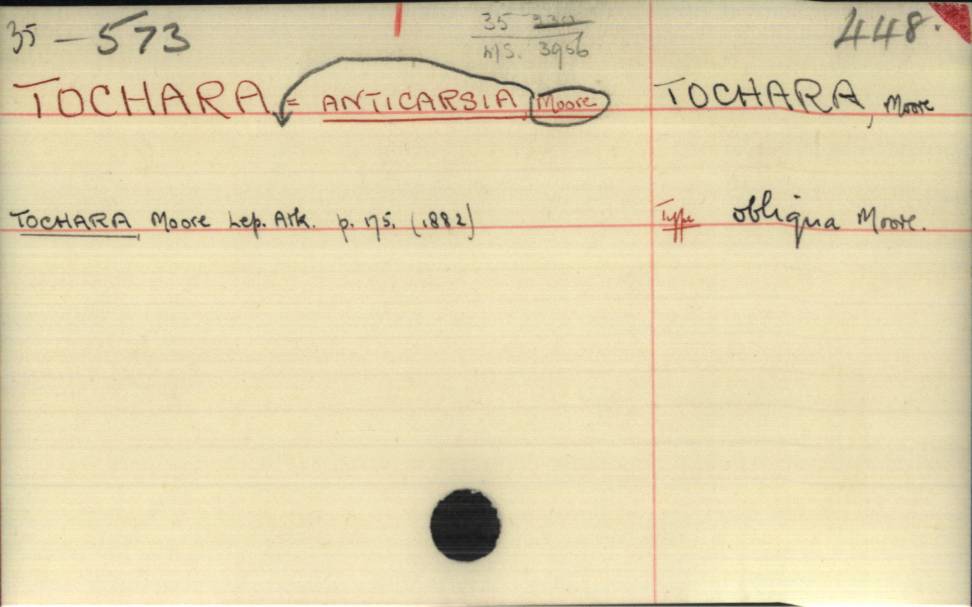 35 – 573
35 330
MS. 3956
448.
TOCHARA = ANTICARSIA, Moore
TOCHARA, Moore
TOCHARA, Moore Lep. Atk. p. 175. (1882)
Type obliqua Moore.